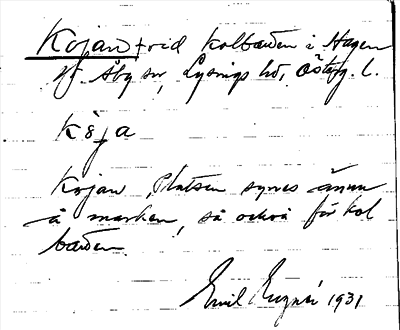 Kojan, vid kolbacken i Hagen
V. Åby sn, Lysings hd, Östg. l.
Kòja
Kojan, Platsen synes ännu
å marken, så också för kol
backen.
Emil 1931